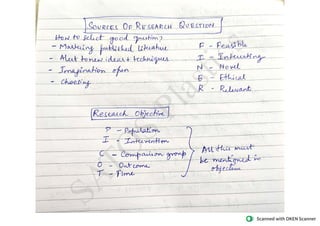 SOURCES OF RESEARCH QUESTION
How to select good questions
- Mastering published literature
- Alert to new ideas & techniques
- Imagination open
- Choosing
F - Feasible
I - Interesting
N - Novel
E - Ethical
R - Relevant
Research Objective
P - Population
I - Intervention
C - Comparison group
O - Outcome
T - Time
All this must
be mentioned in
objective
Scanned with OKEN Scanner